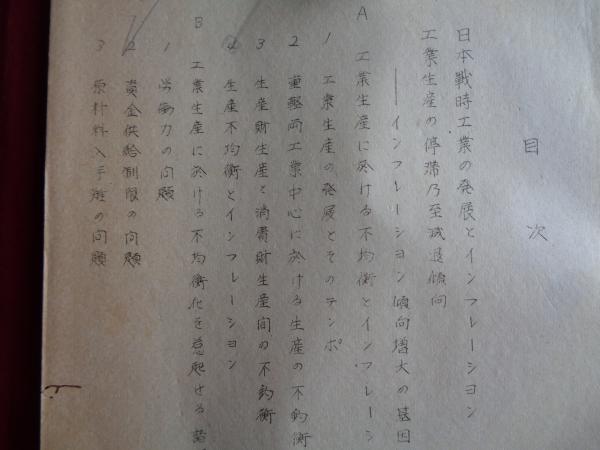 目次
日本戦時工業の発展とインフレーション
工業生産の停滞乃至減退傾向
——インフレーション傾向増大の基因
A 工業生産に於ける不均衡とインフレーシ
1 工業生産の発展とそのテンポ
2 重軽両工業中心に於ける生産の不均衡
3 生産財生産と消費財生産間の不均衡
4 生産不均衡とインフレーション
B 工業生産に於ける不均衡化を惹起せる諸
1 労働力の問題
2 資金供給制限の問題
3 原料入手難の問題